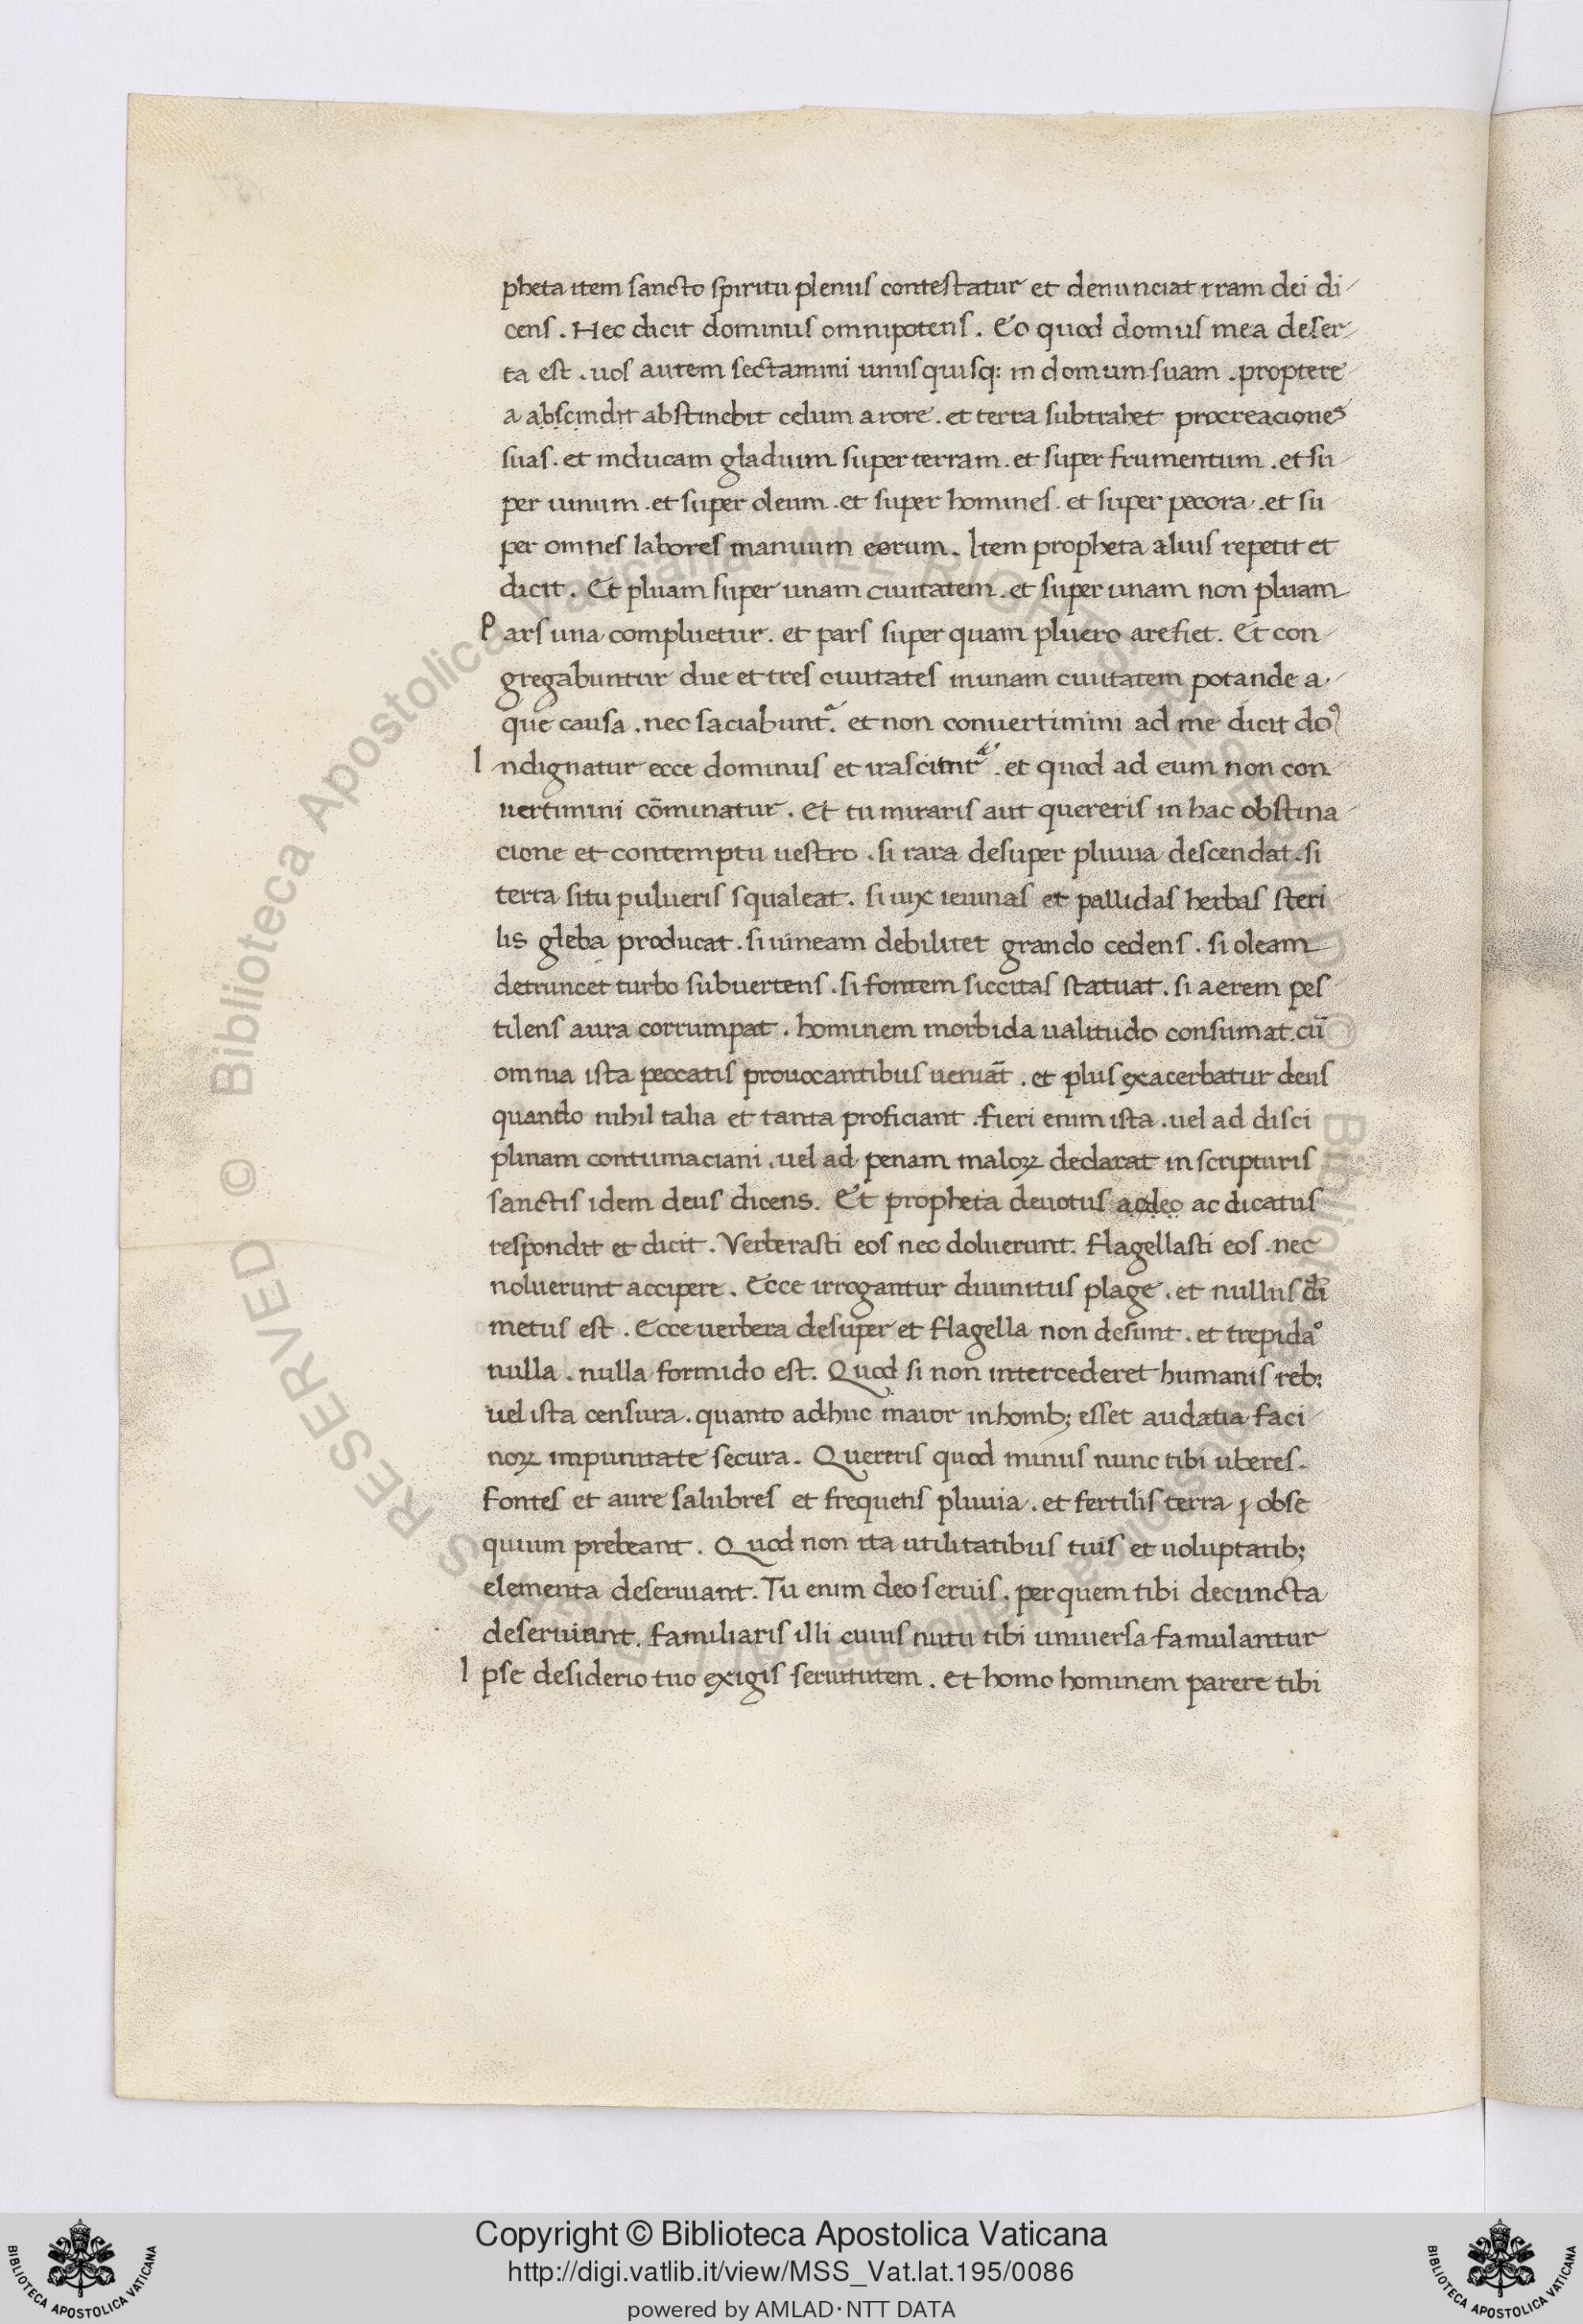 pheta item sancto spiritu plenus contestatur et denunciat iram dei di-
cens. Hec dicit dominus omnipotens. Eo quod domus mea deser-
ta est. uos autem sectamini unusquisq: in domum suam. proptere
a abscindit abstinebit celum a rore. et terra subtrahet procreaciones
suas. et inducam gladium super terram. et super frumentum. et su-
per uinum. et super oleum. et super homines. et super pecora. et su
per omnes labores manuum eorum. Item propheta alius repetit et
dicit. Et pluam super unam ciuitatem. et super unam non pluam
Pars una compluetur. et pars super quam pluero arefiet. Et con-
gregabuntur due et tres ciuitates in unam ciuitatem potande a-
que causa. nec saciabuntᵃ. et non conuertimini ad me dicit doꝰ
Indignatur ecce dominus et irascitntᵃ. et quod ad eum non con
uertimini cōminatur. Et tu miraris aut quereris in hac obstina-
cione et contemptu uestro. si rara desuper pluuia descendat. si
terra situ pulueris squaleat. si uix ieiunas et pallidas herbas steri
lis gleba producat. si uineam debilitet grando cedens. si oleam
detruncet turbo subuertens. si fontem siccitas statuat. si aerem pes-
tilens aura corrumpat. hominem morbida ualitudo consumat. cū
omnia ista peccatis prouocantibus ueniāt. et plus exacerbatur deus
quando nihil talia et tanta proficiant. fieri enim ista. uel ad disci
plinam contumaciani. uel ad penam maloꝝ declarat in scripturis
sanctis idem deus dicens. Et propheta deuotus adeo ac dicatus
respondit et dicit. Verberasti eos nec doluerunt. Flagellasti eos. nec
noluerunt accipere. Ecce irrogantur diuinitus plage. et nullus di
metus est. Ecce uerbera desuper et flagella non desunt. et trepidaº
nulla. nulla formido est. Quod si non intercederet humanis reb;
uel ista censura. quanto adhuc maior in homb; esset audatia faci-
noꝝ impunitate secura. Quereris quod minus nunc tibi uberes.
fontes et aure salubres et frequens pluuia. et fertilis terra obse
quium prebeant. Quod non ita utilitatibus tuis et uoluptatib;
elementa deseruiant. Tu enim deo seruis. per quem tibi de cuncta
deseruiunt. familiaris illi cuius nutu tibi uniuersa famulantur
Ipse desiderio tuo exigis seruitutem. et homo hominem parere tibi
Copyright © Biblioteca Apostolica Vaticana
http://digi.vatlib.it/view/MSS_Vat.lat.195/0086
powered by AMLAD·NTT DATA
BIBLIOTECA APOSTOLICA VATICANA
BIBLIOTECA APOSTOLICA VATICANA